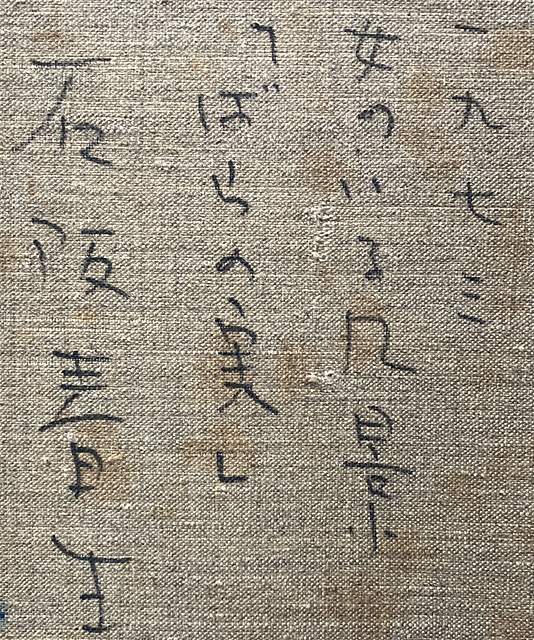 一九七三
女のいる风景
「ばらの実」
石阪春生